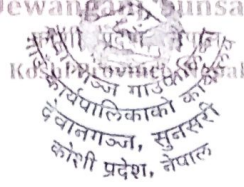 Dewanganj, Sunsa
कोशी प्रदेश, नेपाल
Koshi Province, Nepal
गाउँपालिका
कार्यपालिकाको कार्यालय
देवानगञ्ज, सुनसरी
कोशी प्रदेश, नेपाल